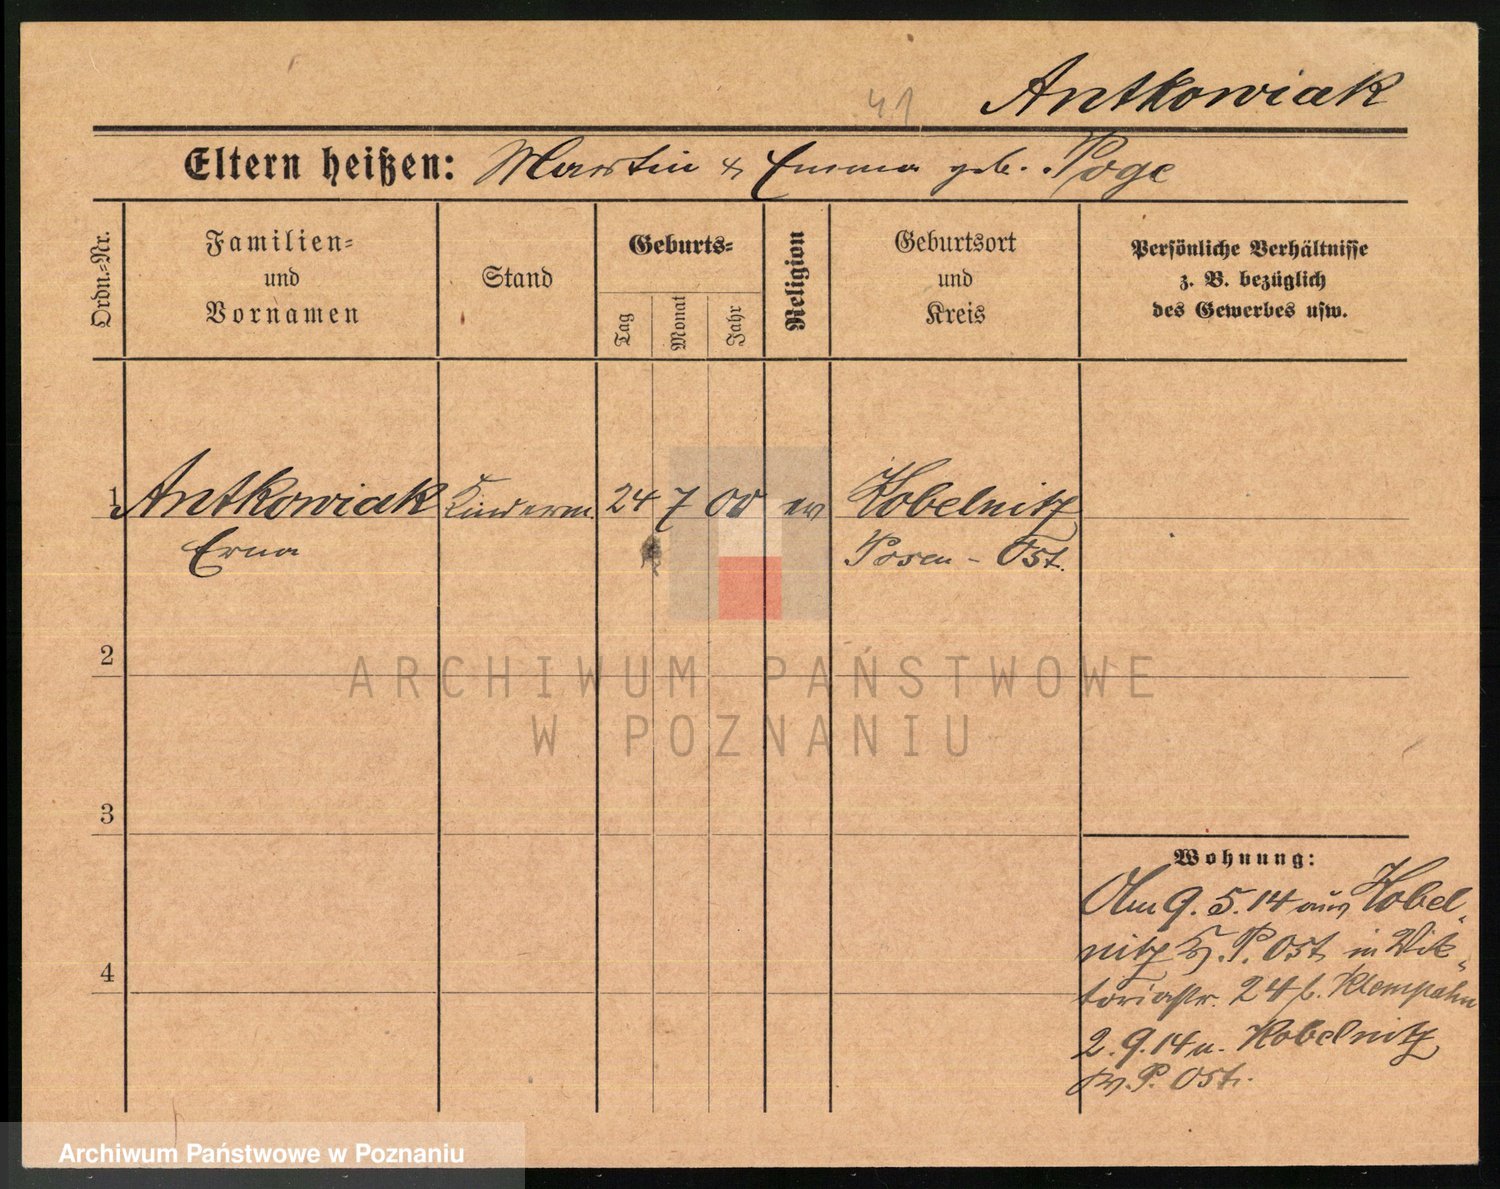 41
Antkowiak
Eltern heißen: Martin & Emma geb. Poge
Ordn.=Nr.
Familien=
und
Vornamen
Stand
Geburts=
Tag
Monat
Jahr
Religion
Geburtsort
und
Kreis
Persönliche Verhältnisse
z. B. bezüglich
des Gewerbes usw.
1 Antkowiak Kinderm. 24 7 00 ev Kobelnitz
Erna Posen - Ost.
2
3
4
Wohnung:
Am 9. 5. 14 aus Kobel-
nitz Kr. P. Ost in Vik-
toriastr. 24 b. Klempahn
2. 9. 14 n. Kobelnitz
Kr. P. Ost.
ARCHIWUM PAŃSTWOWE
W POZNANIU
Archiwum Państwowe w Poznaniu